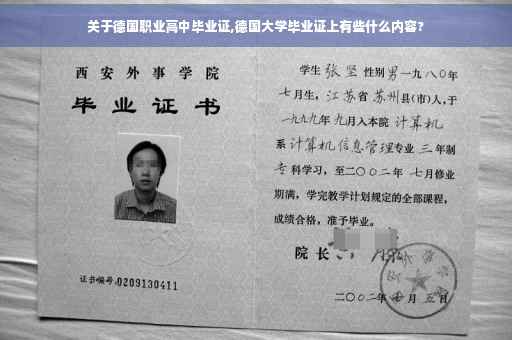 关于德国职业高中毕业证,德国大学毕业证上有些什么内容?
西安外事学院
毕业证书
证书编号:0209130411
学生 张坚 性别男 一九八〇年
七月生, 江苏省 苏州县(市)人,于
一九九九年 九月入本院 计算机
系 计算机信息管理 专业 三 年制
专 科学习, 至二〇〇二年 七月修业
期满, 学完教学计划规定的全部课程,
成绩合格, 准予毕业。
院 长
二〇〇二年 七 月 五 日